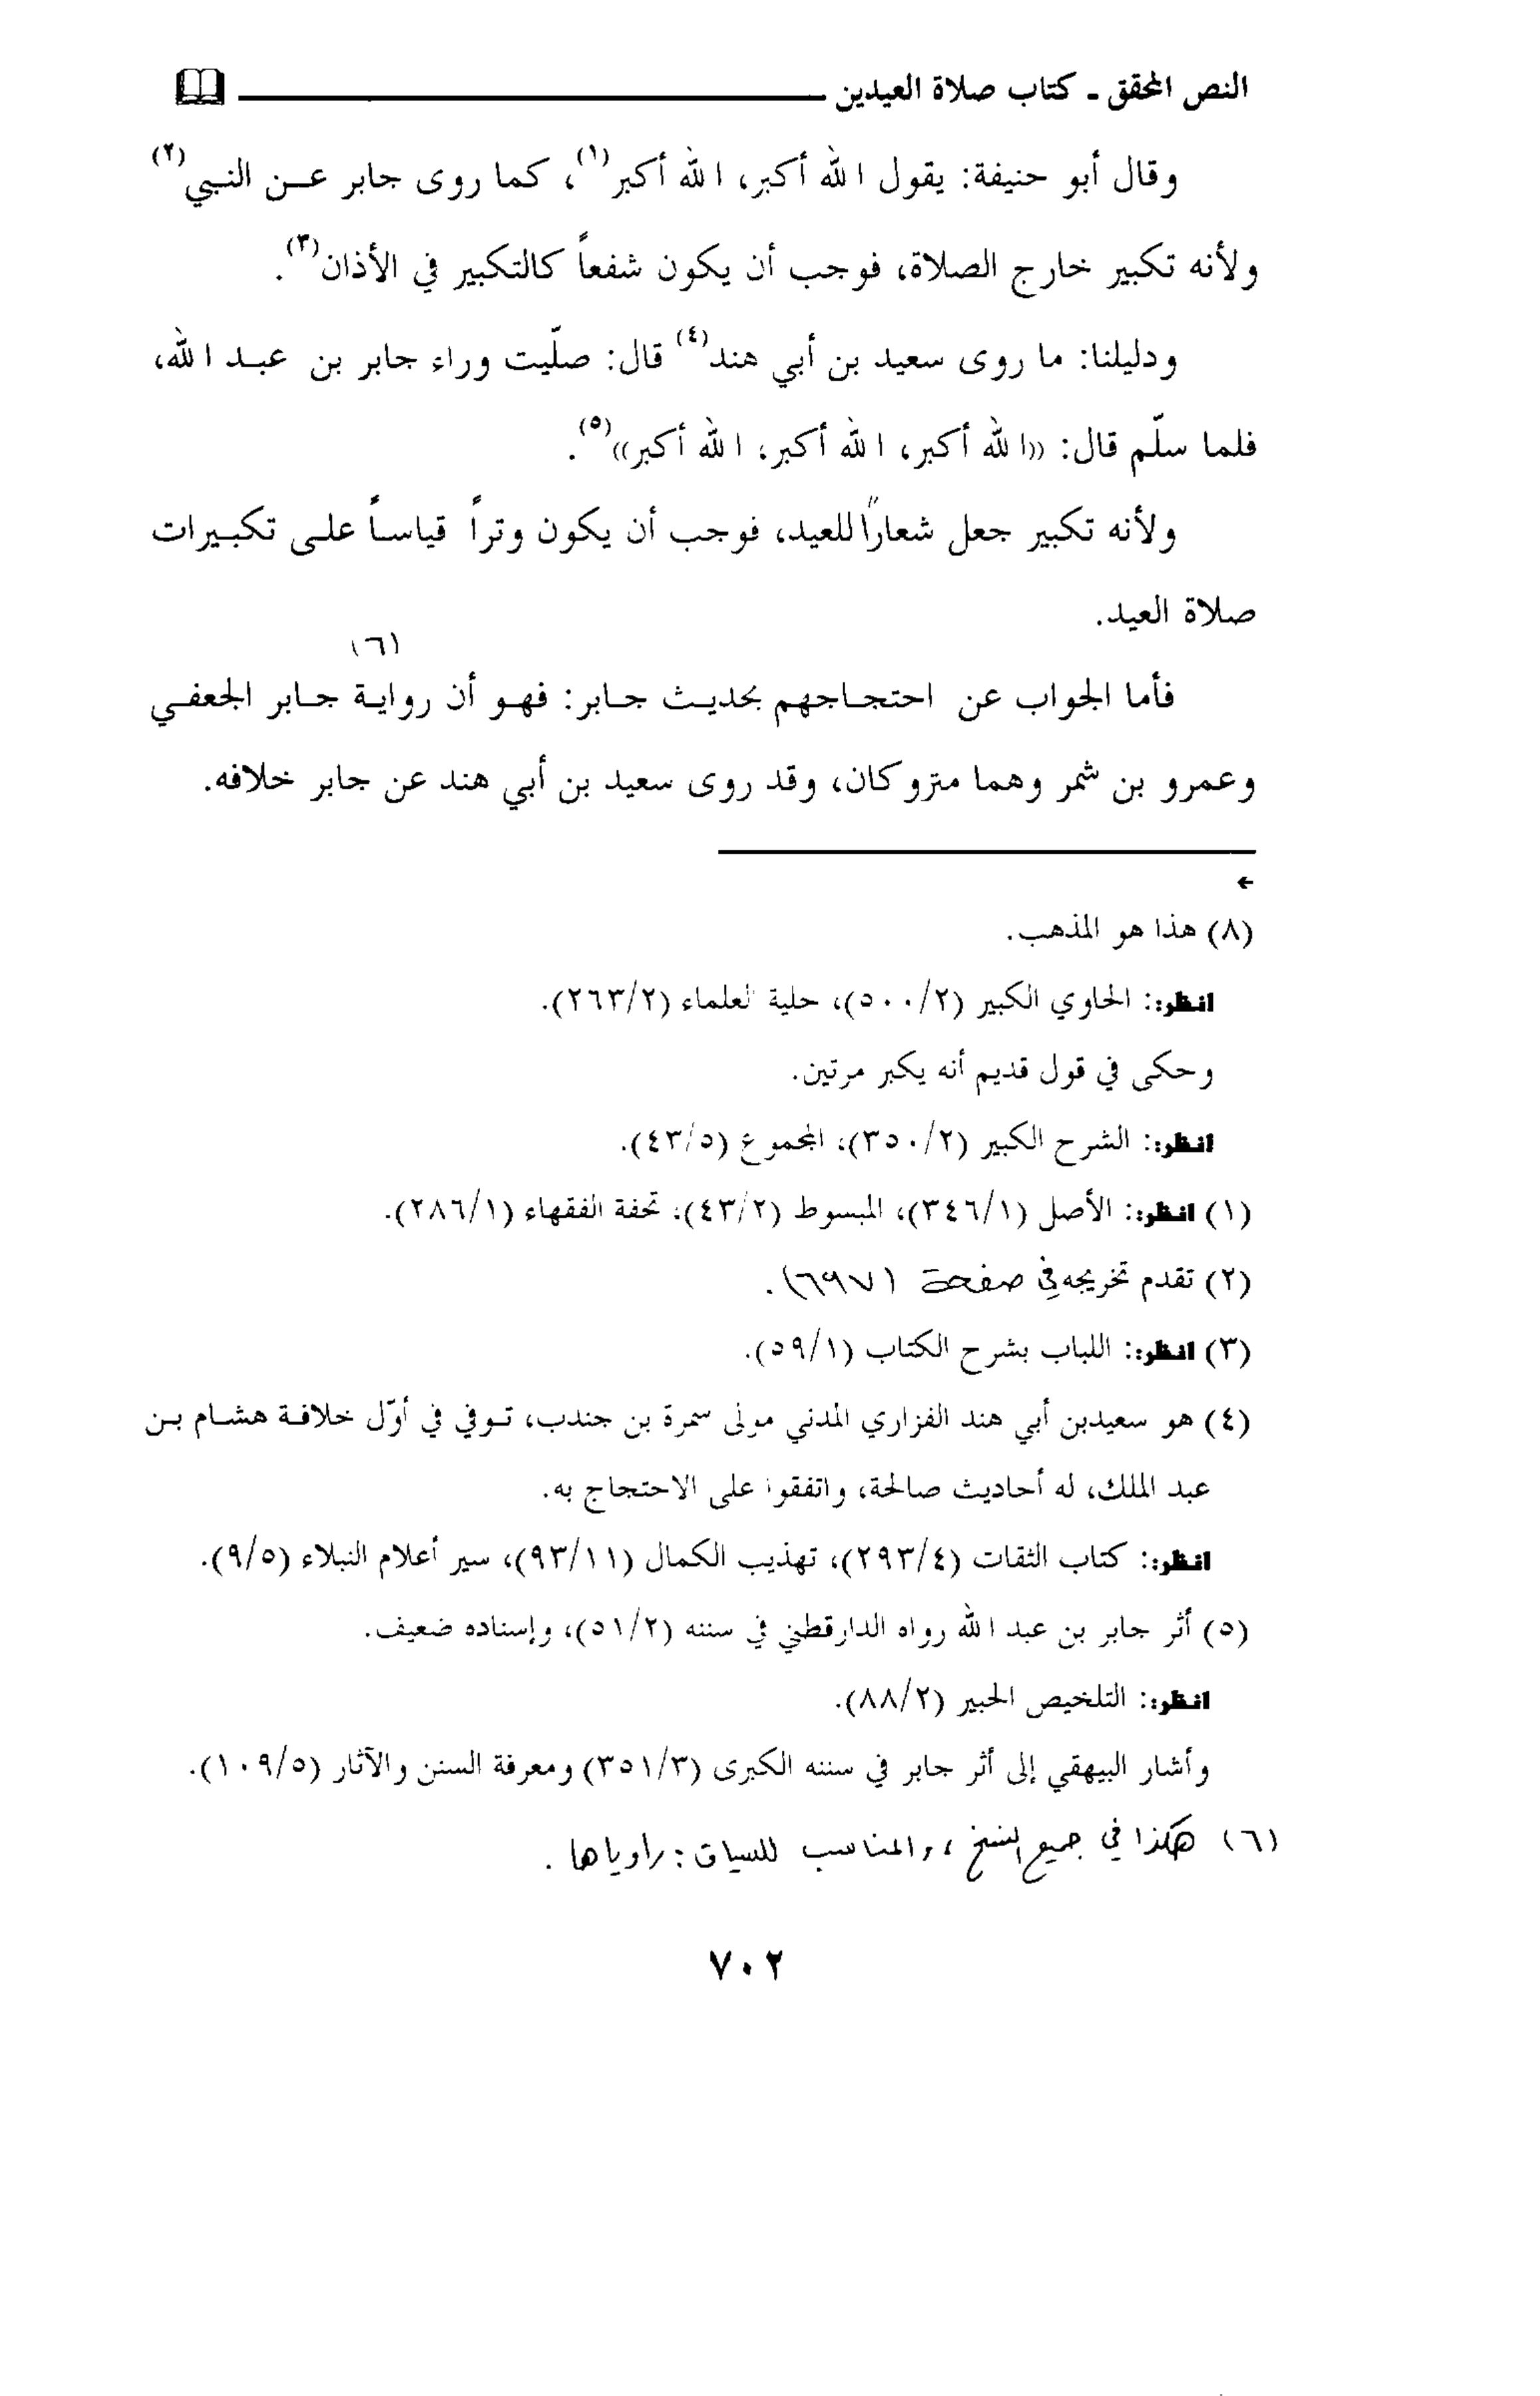 النص المحقق ـ كتاب صلاة العيدين
وقال أبو حنيفة: يقول الله أكبر، الله أكبر(١)، كما روى جابر عن النبي(٢)
ولأنه تكبير خارج الصلاة، فوجب أن يكون شفعاً كالتكبير في الأذان(٣).
ودليلنا: ما روى سعيد بن أبي هند(٤) قال: صلّيت وراء جابر بن عبد الله،
فلما سلّم قال: ((الله أكبر، الله أكبر، الله أكبر))(٥).
ولأنه تكبير جعل شعاراً للعيد، فوجب أن يكون وتراً قياساً على تكبيرات
صلاة العيد.
فأما الجواب عن احتجاجهم بحديث جابر: فهو أن رواية(٦) جابر الجعفي
وعمرو بن شمر وهما متروكان، وقد روى سعيد بن أبي هند عن جابر خلافه.
←
(٨) هذا هو المذهب.
انظر: الحاوي الكبير (٥٠٠/٢)، حلية العلماء (٢٦٣/٢).
وحكى في قول قديم أنه يكبر مرتين.
انظر: الشرح الكبير (٣٥٠/٢)، المجموع (٤٣/٥).
(١) انظر: الأصل (٣٤٦/١)، المبسوط (٤٣/٢)، تحفة الفقهاء (٢٨٦/١).
(٢) تقدم تخريجه في صفحة (٦٩٧).
(٣) انظر: اللباب بشرح الكتاب (٥٩/١).
(٤) هو سعيدبن أبي هند الفزاري المدني مولى سمرة بن جندب، توفي في أوّل خلافة هشام بن
عبد الملك، له أحاديث صالحة، واتفقوا على الاحتجاج به.
انظر: كتاب الثقات (٢٩٣/٤)، تهذيب الكمال (٩٣/١١)، سير أعلام النبلاء (٩/٥).
(٥) أثر جابر بن عبد الله رواه الدارقطني في سننه (٥١/٢)، وإسناده ضعيف.
انظر: التلخيص الحبير (٨٨/٢).
وأشار البيهقي إلى أثر جابر في سننه الكبرى (٣٥١/٣) ومعرفة السنن والآثار (١٠٩/٥).
(٦) هكذا في جميع النسخ، والمناسب للسياق: راوياها.
٧٠٢